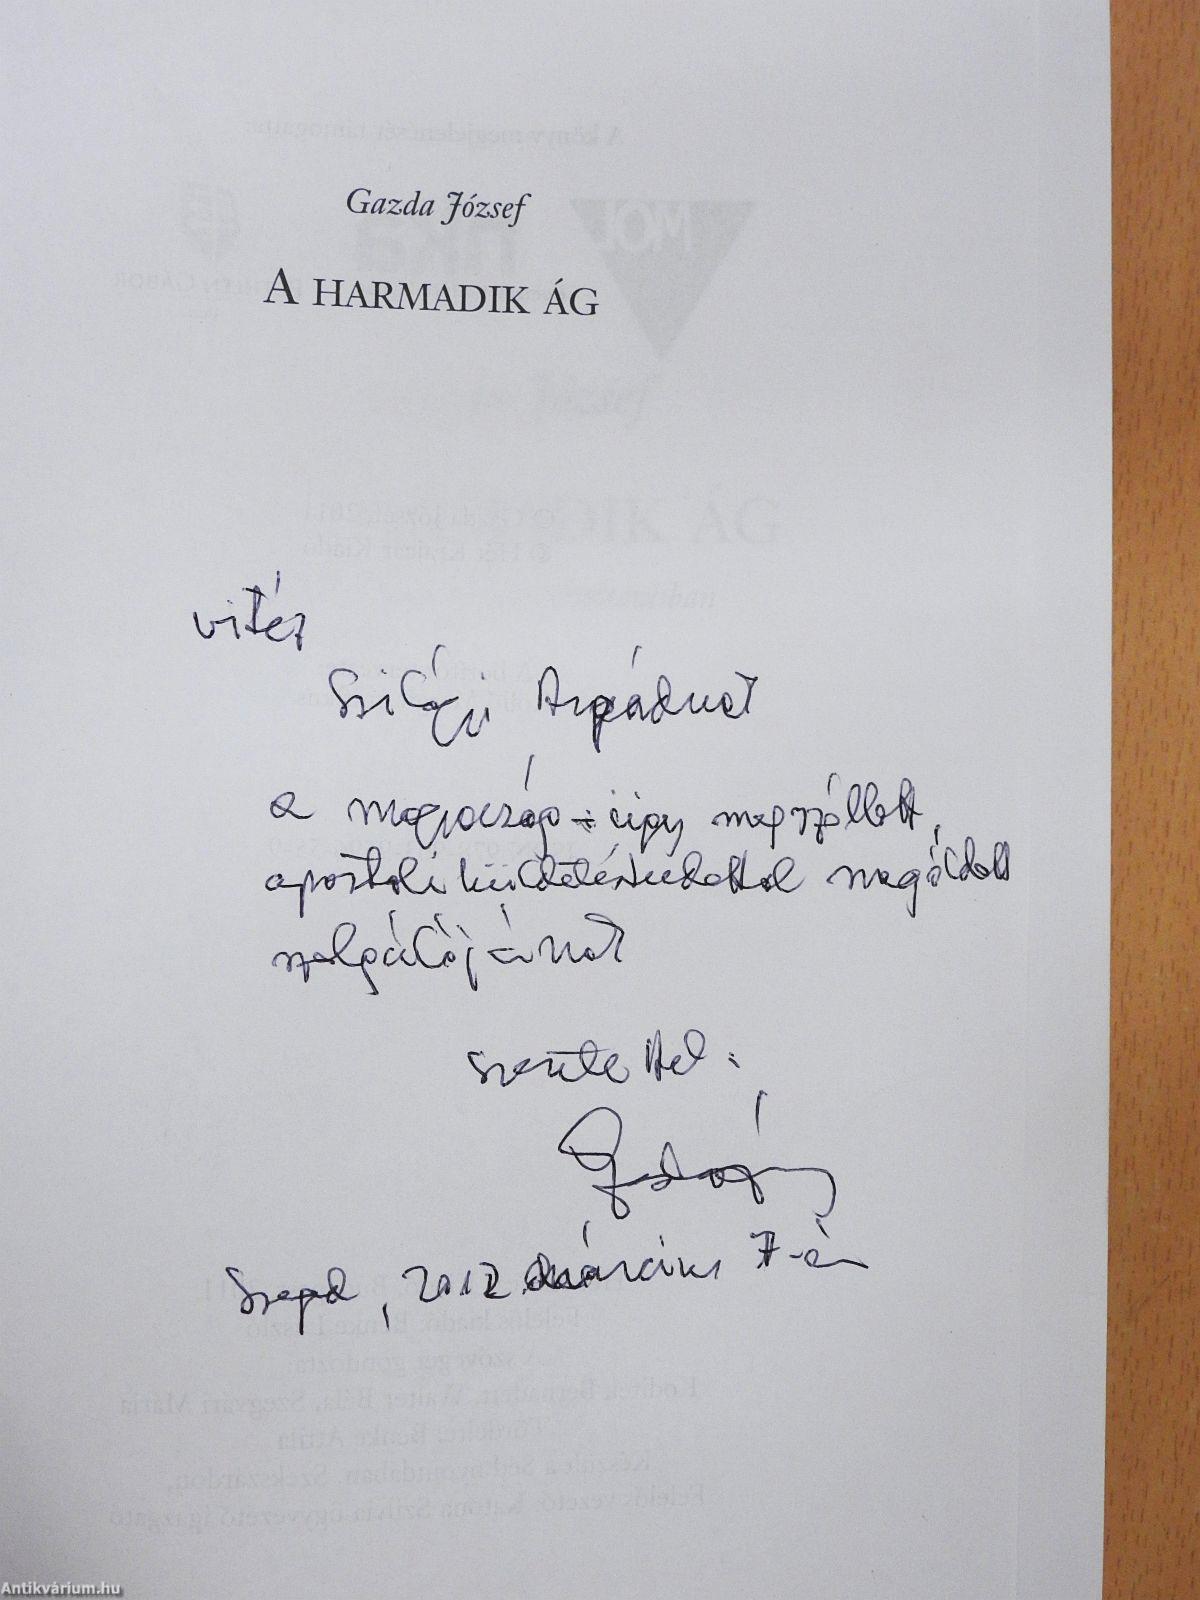 Gazda József
A HARMADIK ÁG
vitéz
Szilágyi Árpádnak
a magyarság-ügy megszállott,
apostoli küldetéstudattal megáldott
szolgálójának
szeretettel:
Szeged, 2012 március 7-én
Antikvárium.hu